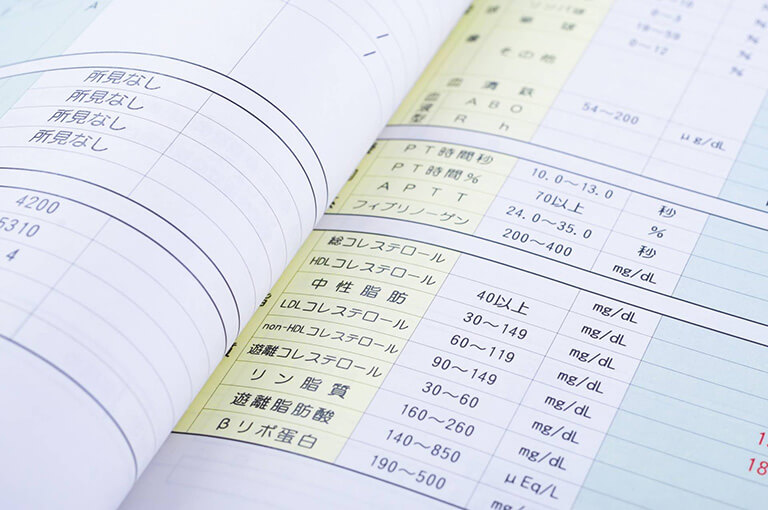 A
所見なし
所見なし
所見なし
所見なし
4200
5310
4
0～3 %
18～59 %
0～12 %
その他
血清鉄 54～200 μg/dL
ABO
Rh
PT時間秒 10.0～13.0 秒
PT時間% 70以上 %
APTT 24.0～35.0 秒
フィブリノーゲン 200～400 mg/dL
総コレステロール mg/dL
HDLコレステロール 40以上 mg/dL
中性脂肪 30～149 mg/dL
LDLコレステロール 60～119 mg/dL
non-HDLコレステロール 90～149 mg/dL
遊離コレステロール 30～60 mg/dL
リン脂質 160～260 mg/dL
遊離脂肪酸 140～850 μEq/L
βリポ蛋白 190～500
18